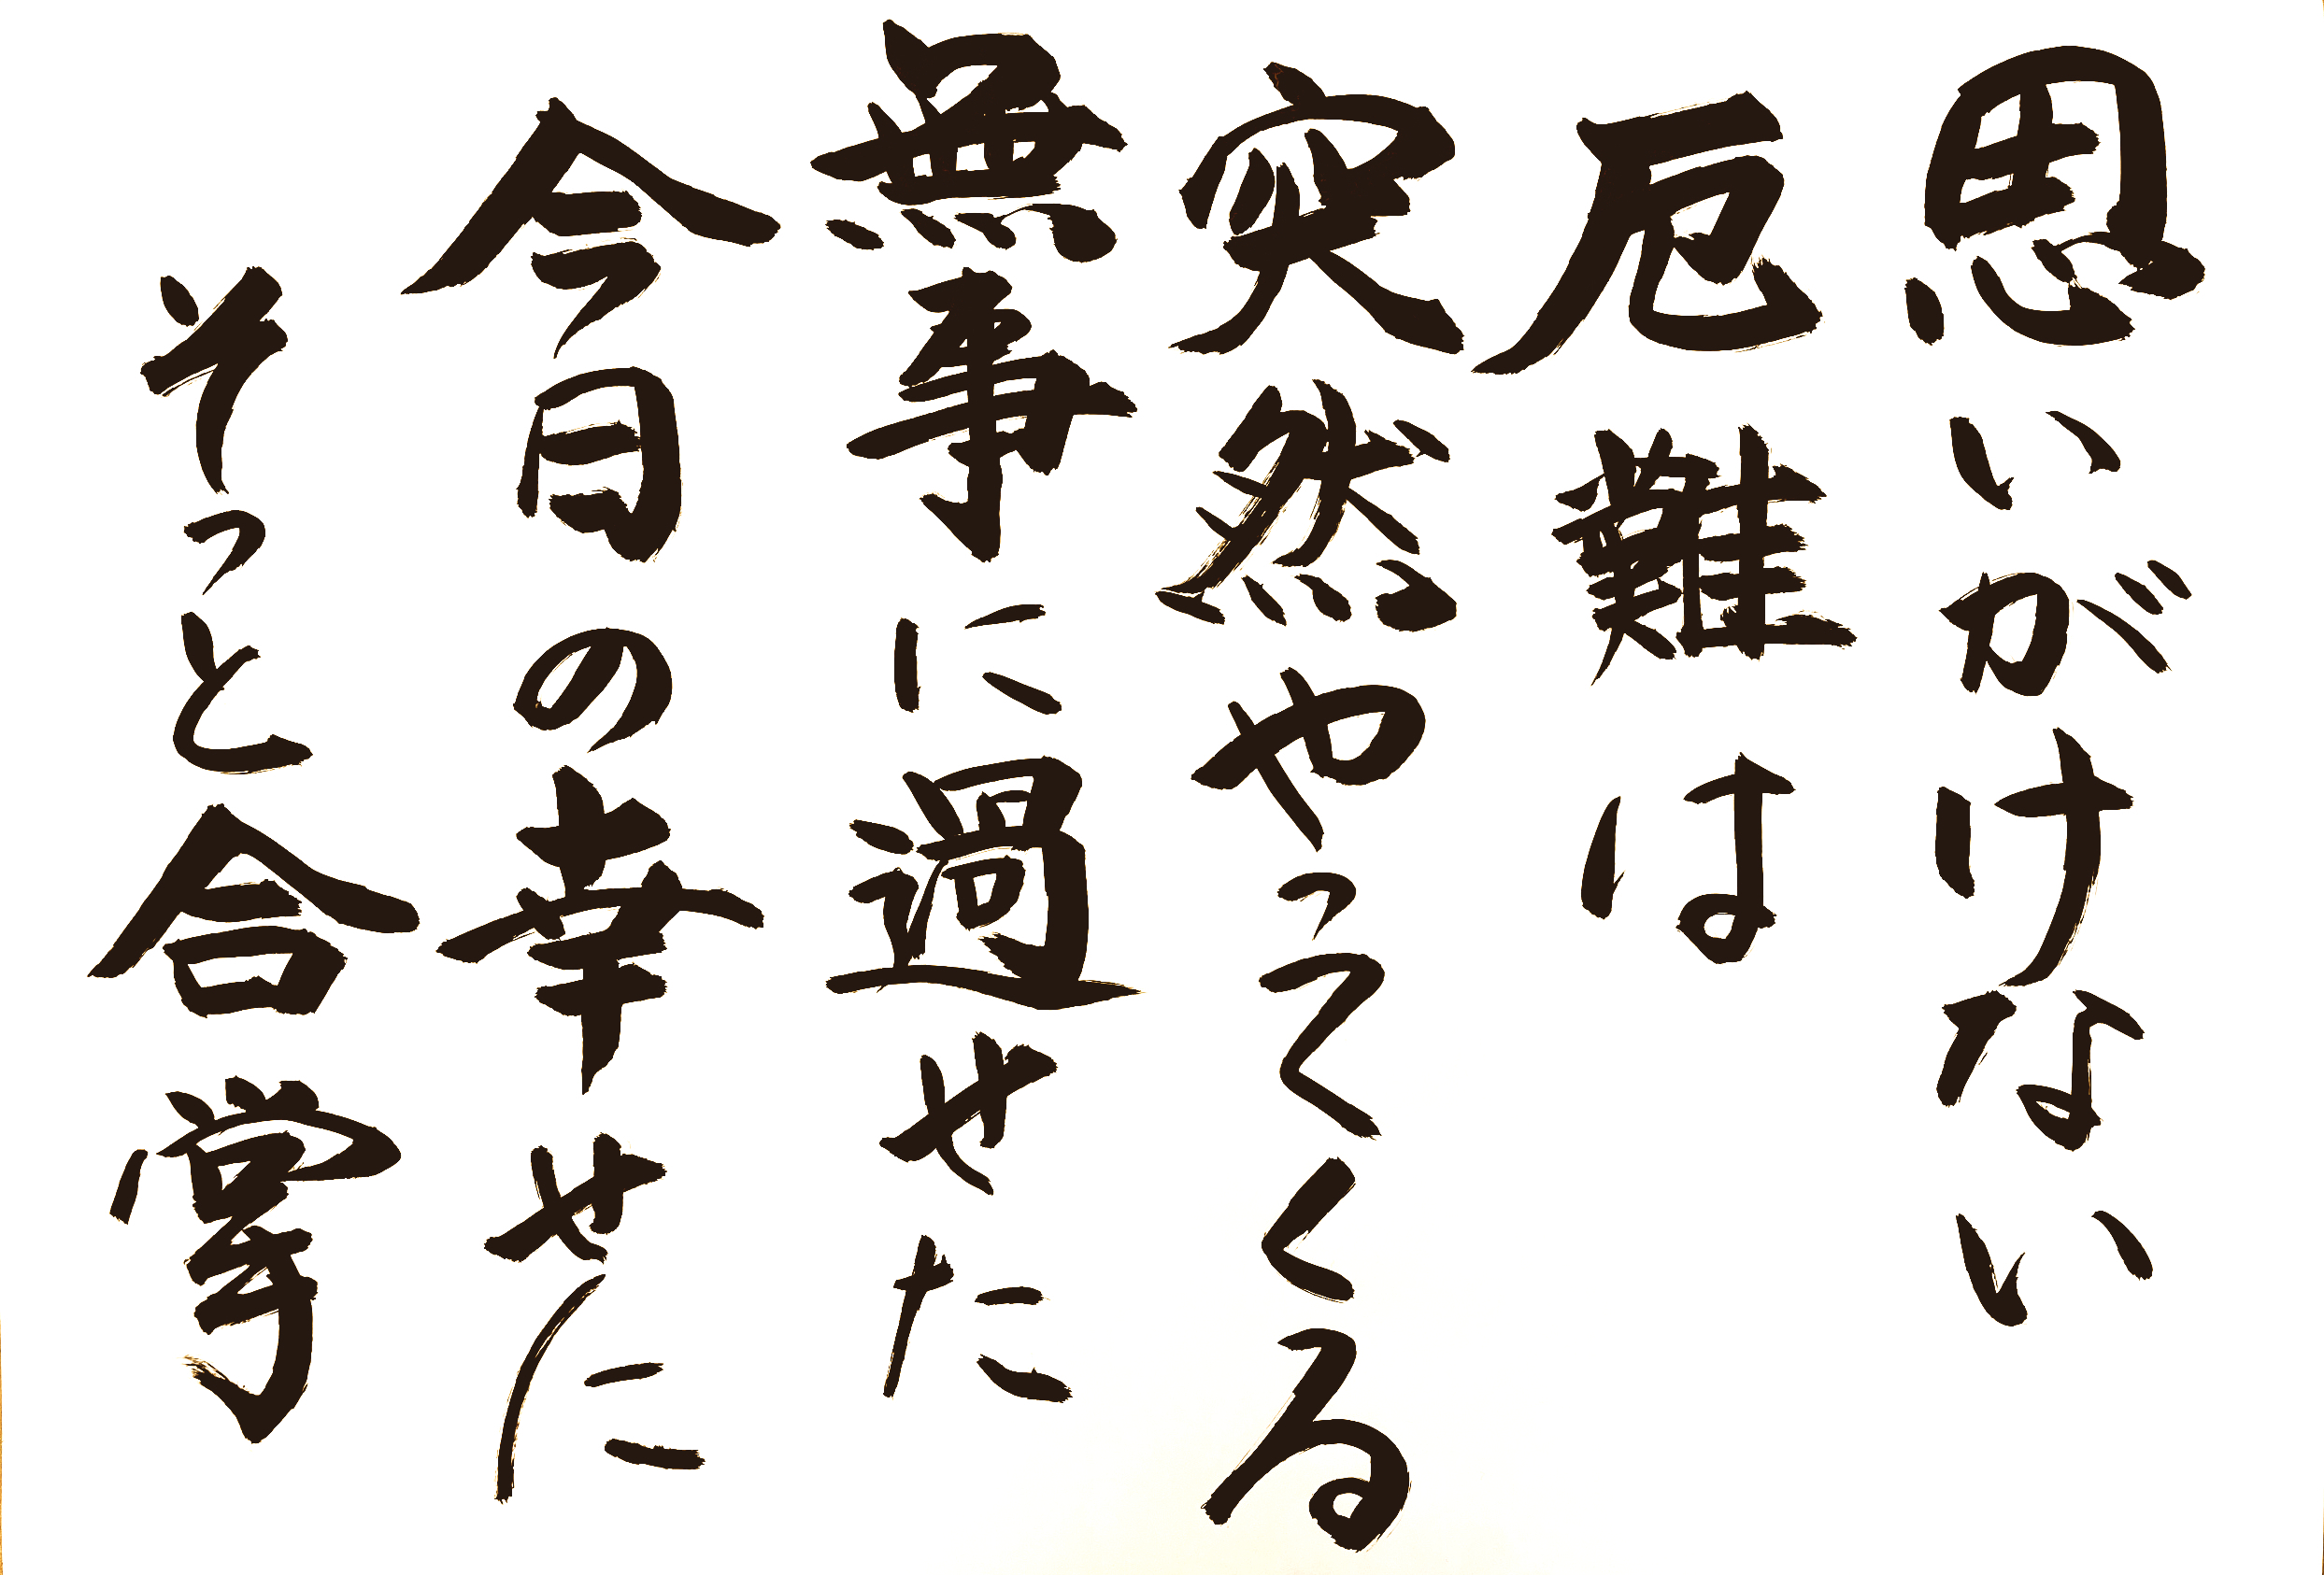 思いがけない
厄難は
突然やってくる
無事に過せた
今日の幸せに
そっと合掌